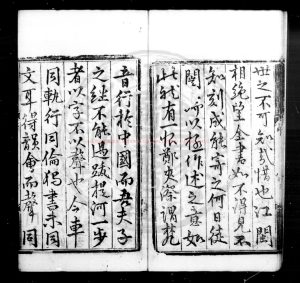 世之不可知惜也江閩
相繼望金書如不得見不
知刻成能寄之何日徒
以極作述之意如
此有懷鄭夾漈謂梵
音行於中國而吾夫子
之經不能過跋提河一步
者以字不以聲也今車
同軌行同倫獨書未同
文耳得韻會而聲同